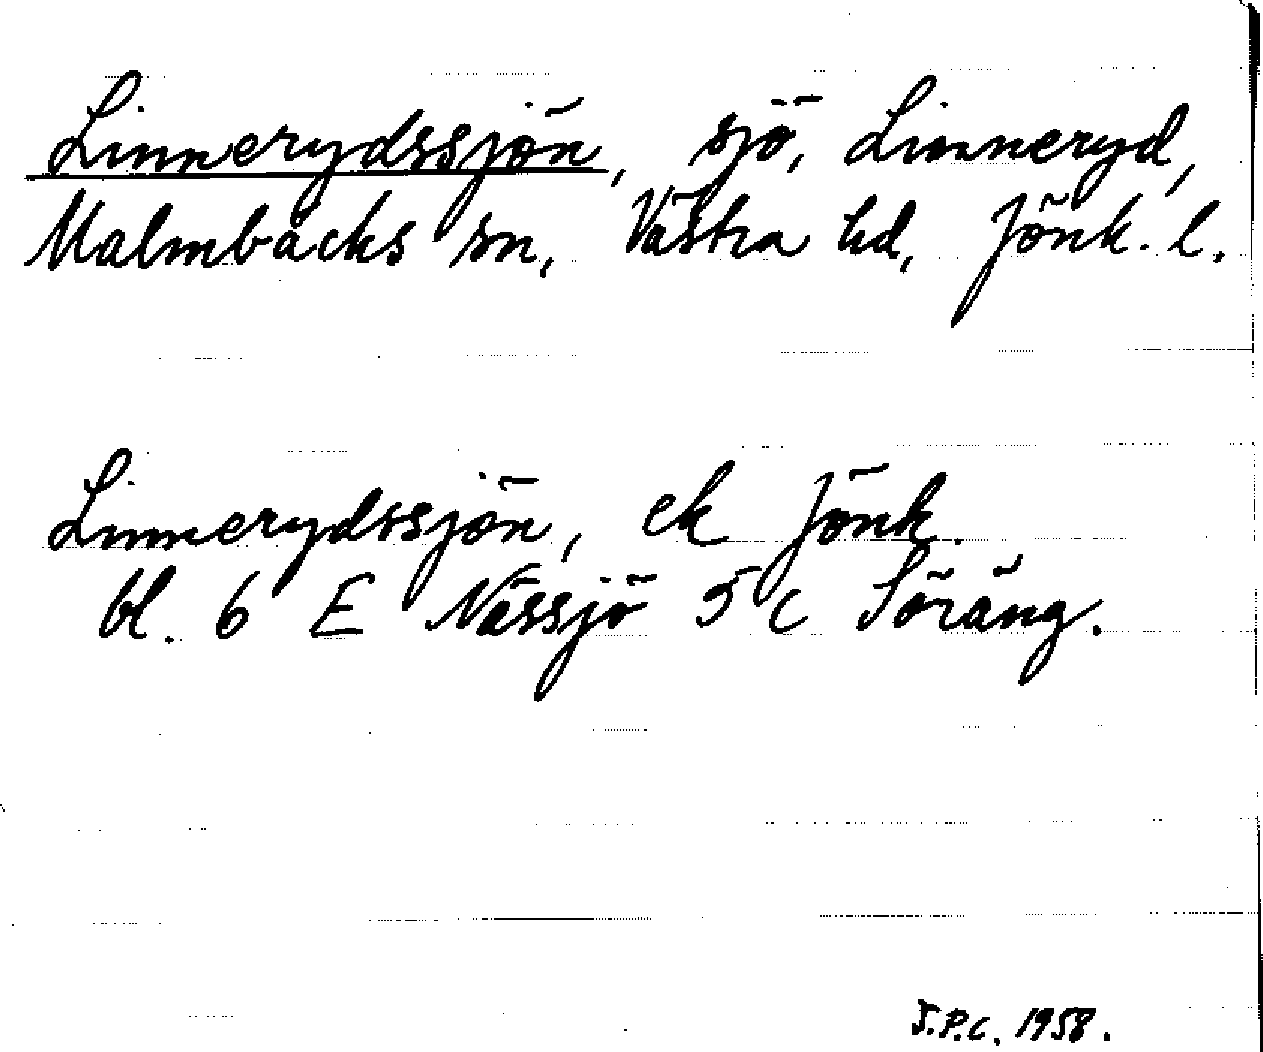 Linnerydssjön, sjö, Linneryd,
Malmbäcks sn, Västra hd, Jönk. l.
Linnerydssjön, ek Jönk.
bl. 6 E Nässjö 5 c Söräng.
J.P.C. 1958.